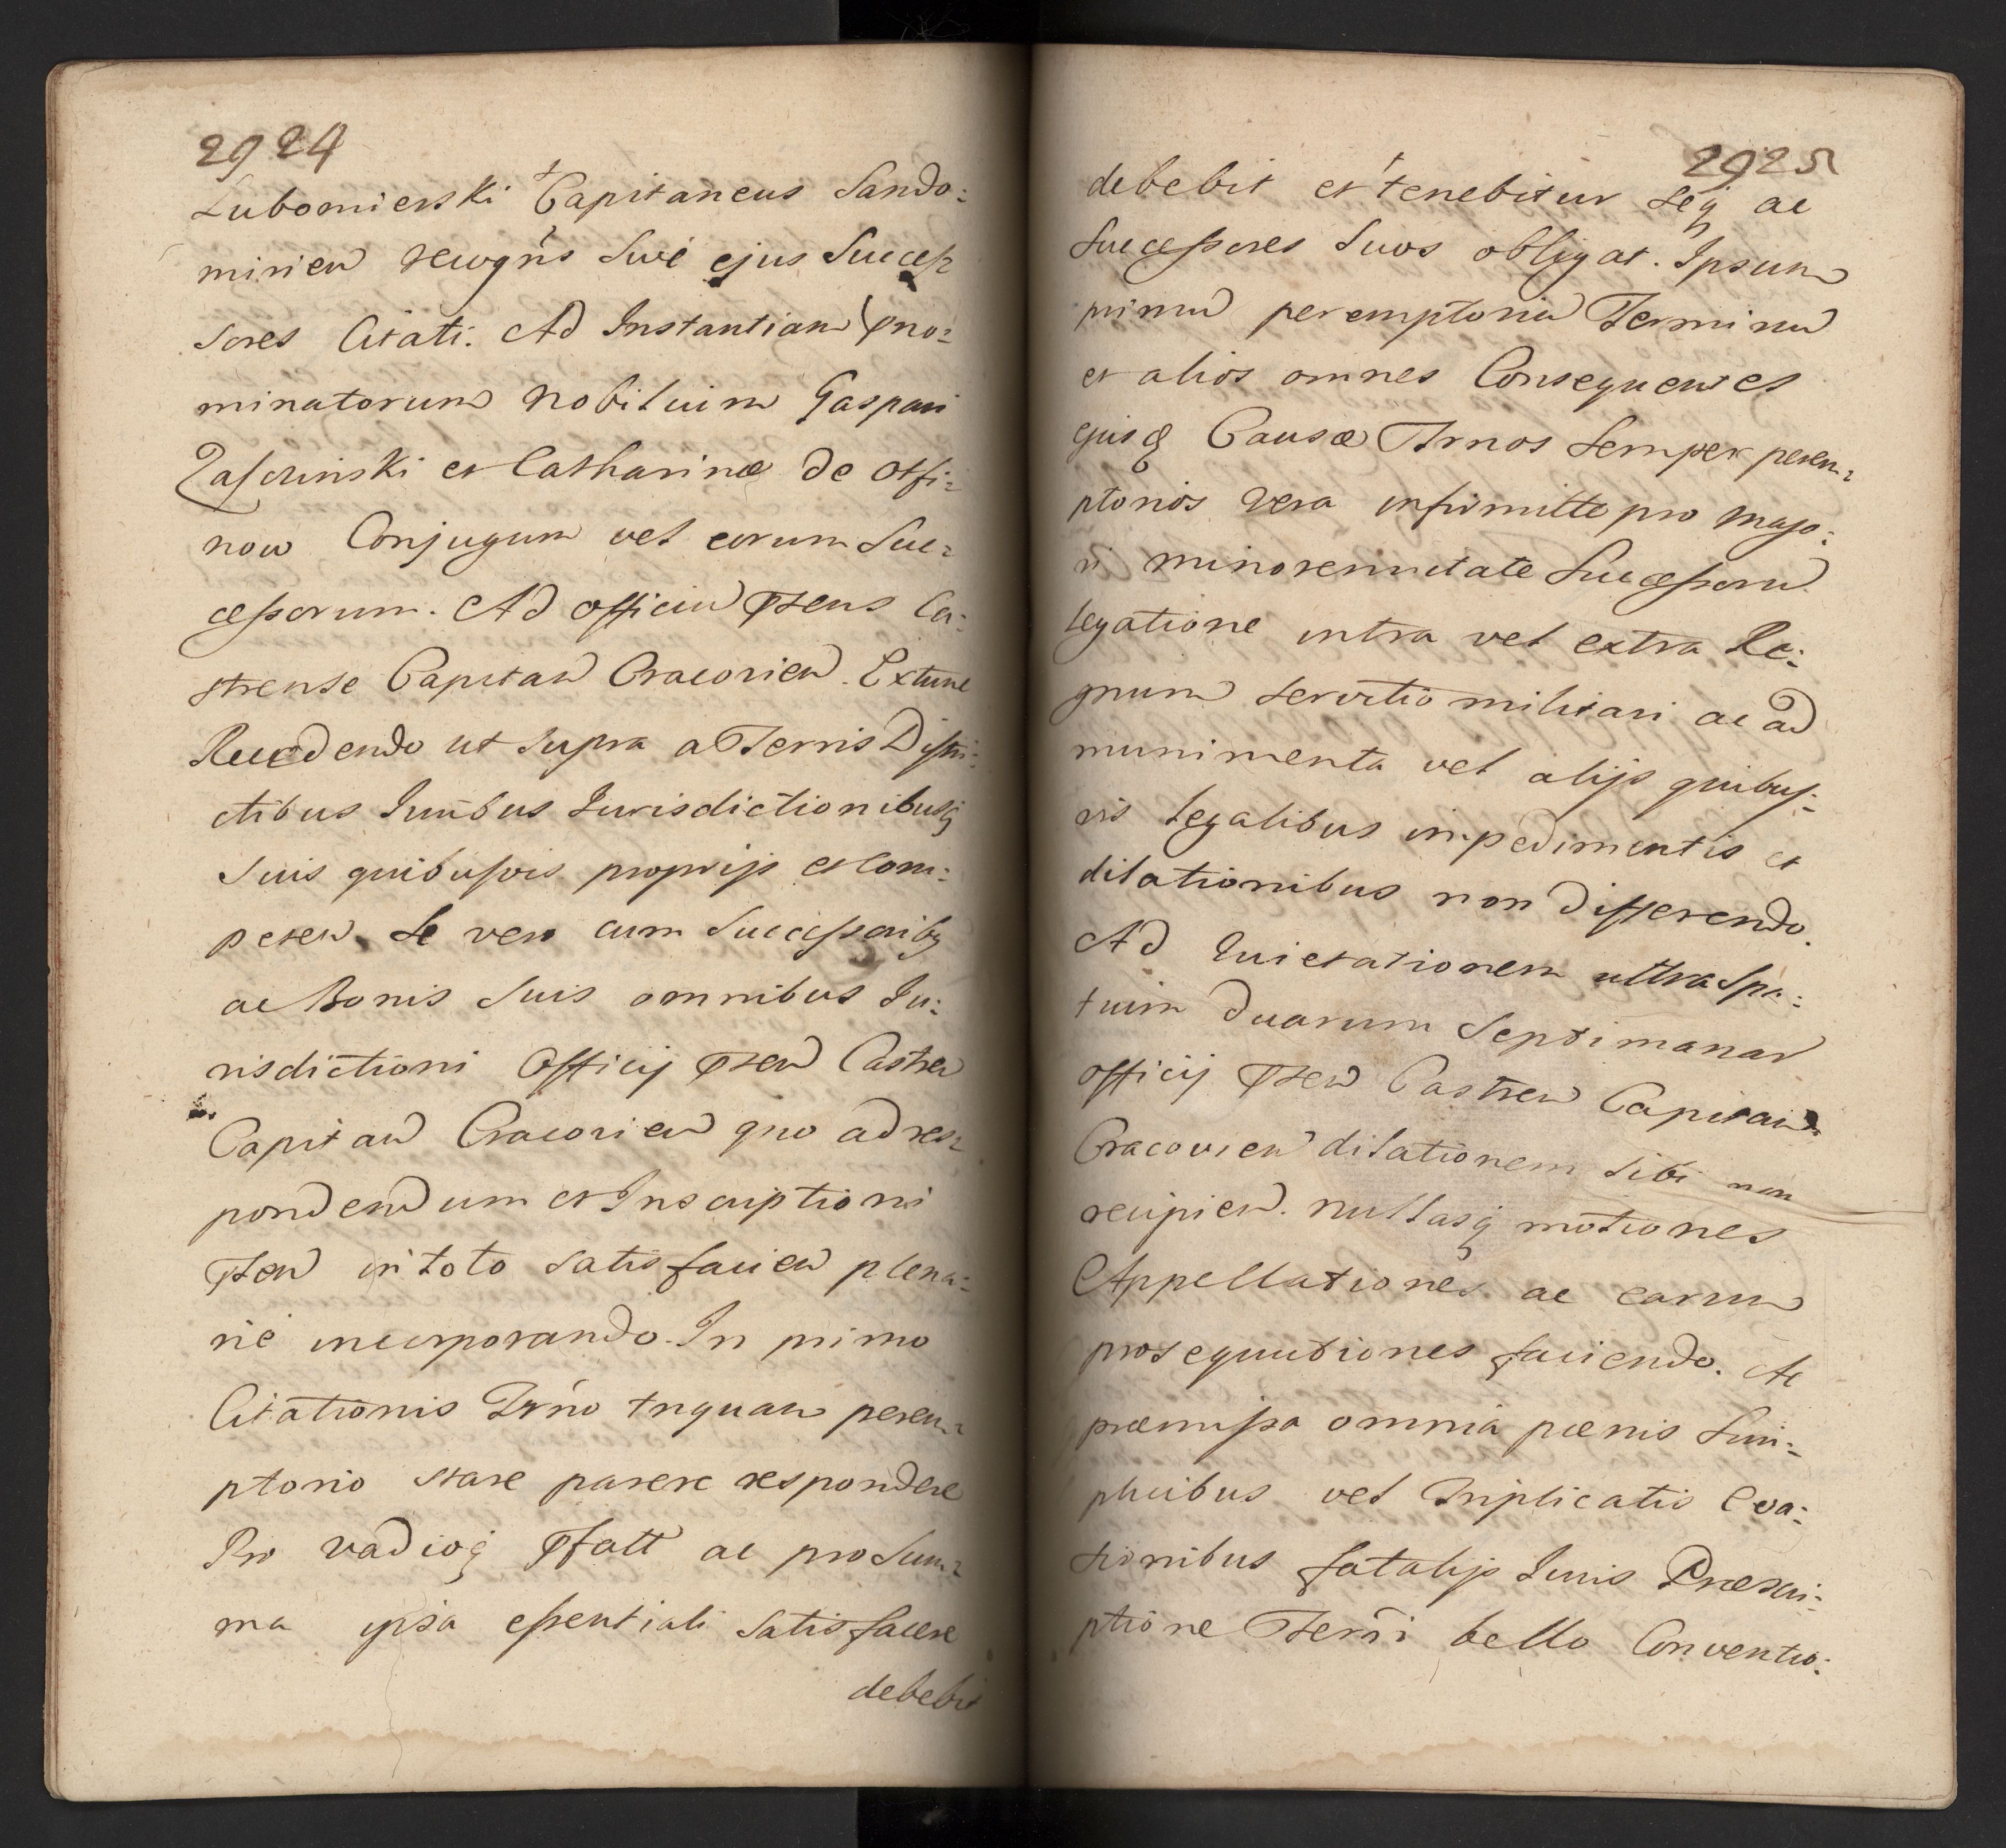 2924
Lubomierski Capitaneus Sando:
mirien recogñs Sive ejus Succes
sores Citati. Ad Instantiam pno:
minatorum Nobilium Gaspari
et Catharinæ de Osfi:
now Conjugum vel eorum Suc:
cessorum. Ad officiu Pzens Ca:
strense Capitan Cracovien. Extunc
Recedendo ut supra a Terris Distri:
ctibus Juribus Jurisdictionibusq
Suis quibusvis proprijs et Com:
peten. Se vero cum Successoribq
ac Bonis Suis omnibus Ju:
risdictioni Officij Pzen Castren
Capitan Cracovien quo ad res:
pondendum et Inscriptioni
Pzen in toto satisfacien plena:
rié incorporando. In primo
Citationis Trño tnquam perem:
ptorio stare parere respondere
Pro vadioq Pfatt ac pro Sum:
ma ipsa essentiali Satisfacere
debebit
2925
debebit et tenebitur Seq ac
Successores Suos obligat. Ipsum
primu peremptoriu Terminu
et alios omnes Consequentes
ejusq Causæ Trnos Semper perem:
ptorios vera infirmitte pro majo:
ri minorennitate Successoru
legatione intra vel extra Re:
gnum servitio militari ac ad
munimenta vel alijs quibus:
vis legalibus impedimentis et
dilationibus non differendo.
Ad Quietationem ultra Spa:
tium duarum Septimanar
officij Pzen Castren Capitan
Cracovien dilationem Sibi non
recipien. nullasq motiones
Appellationes ac earum
prosequutiones faciendo. Ac
præmissa omnia pænis Sim:
plicibus vel Triplicatis Eva:
sionibus fatalijs Juris Præscri:
ptione bello Conventio: